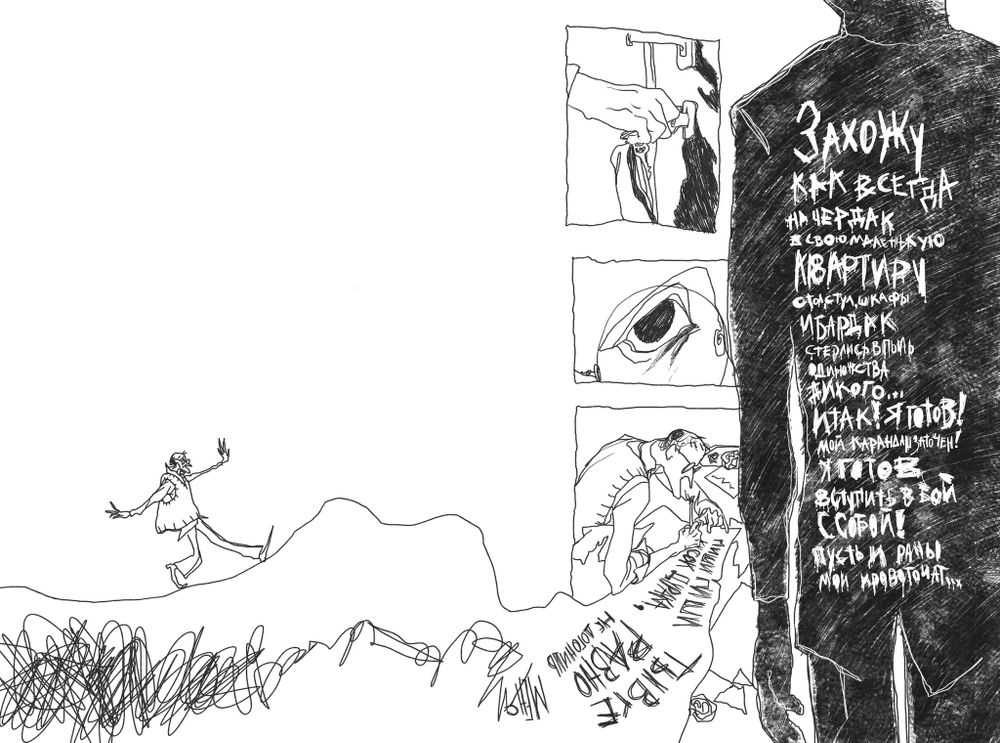 ЗАХОЖУ
КАК ВСЕГДА
НА ЧЕРДАК
В СВОЮ МАЛЕНЬКУЮ
КВАРТИРУ
СТОЛ, СТУЛ, ШКАФЫ
И БАРДАК
СТЕРЛИСЬ В ПЫЛЬ
ОДИНОЧЕСТВА
ДИКОГО...
ИТАК! Я ГОТОВ!
МОЙ КАРАНДАШ ЗАТОЧЕН!
Я ГОТОВ
ВСТУПИТЬ В БОЙ
С СОБОЙ!
ПУСТЬ И РАНЫ
МОИ КРОВОТОЧАТ...
ПИШИ
КУСОК ДУРАКА,
ТЫ ВСЕ
РАВНО
НЕ ДОГОНИШЬ
МЕНЯ